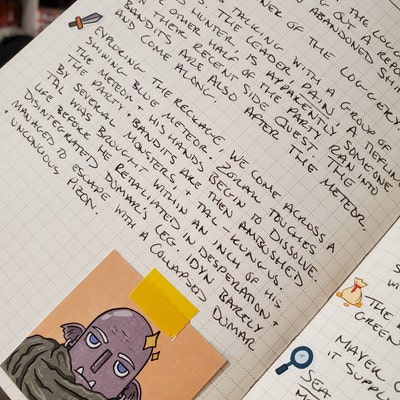 THE LOGG
ING OUT A REPO
OWNER OF THE
ABANDONED SHI
LOGGERY.
IS TALKING WITH A GROUP OF
S. THE LEADER, PAIN
COUNTER IS APPARENTLY SOMEONE
E OTHER HALF OF THE PARTY RAN INTO
N THEIR RECENT SIDE QUEST. THE
BANDITS ARE ALSO AFTER THE METEOR
AND COME ALONG.
EXPLORING THE WRECKAGE, WE COME ACROSS A
SHINING BLUE METEOR. ESORAH TOUCHES
THE METEOR + HIS HANDS BEGIN TO DISSOLVE.
THE PARTY + BANDITS ARE THEN AMBUSHED
BY SEVERAL MONSTERS, + TAL-KUNG-US.
TAL WAS BROUGHT WITHIN AN INCH OF HIS
LIFE BEFORE HE RETALIATED IN DESPERATION +
DISINTEGRATED DUMAR'S LEG. IDYN BARELY
MANAGED TO ESCAPE WITH A COLLAPSED DUMAR
+ UNCONCIOUS PIZON.
THE A
GREEN
MAYER C
IT SUPPL
SEA